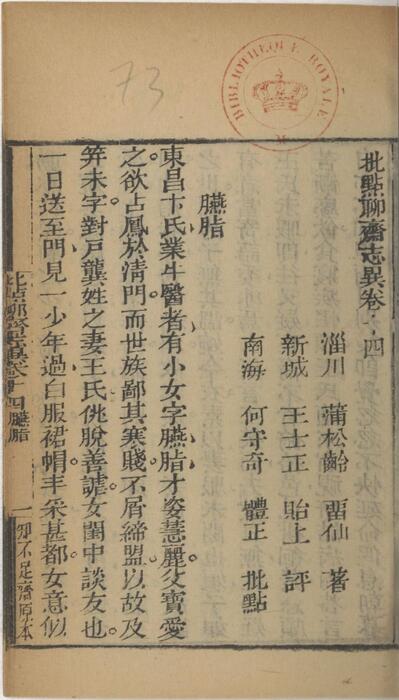 73
BIBLIOTHEQUE ROYALE
批點聊齋志異卷十四
淄川 蒲松齡 畱仙 著
新城 王士正 貽上 評
南海 何守奇 體正 批點
臙脂
東昌卞氏業牛醫者有小女字臙脂才姿慧麗父寶愛
之欲占鳳於清門而世族鄙其寒賤不屑締盟以故及
笄未字對戸龔姓之妻王氏佻脫善謔女閨中談友也
一日送至門見一少年過白服裙帽丰采甚都女意似
批點聊齋志異卷十四 臙脂 一 知不足齋原本